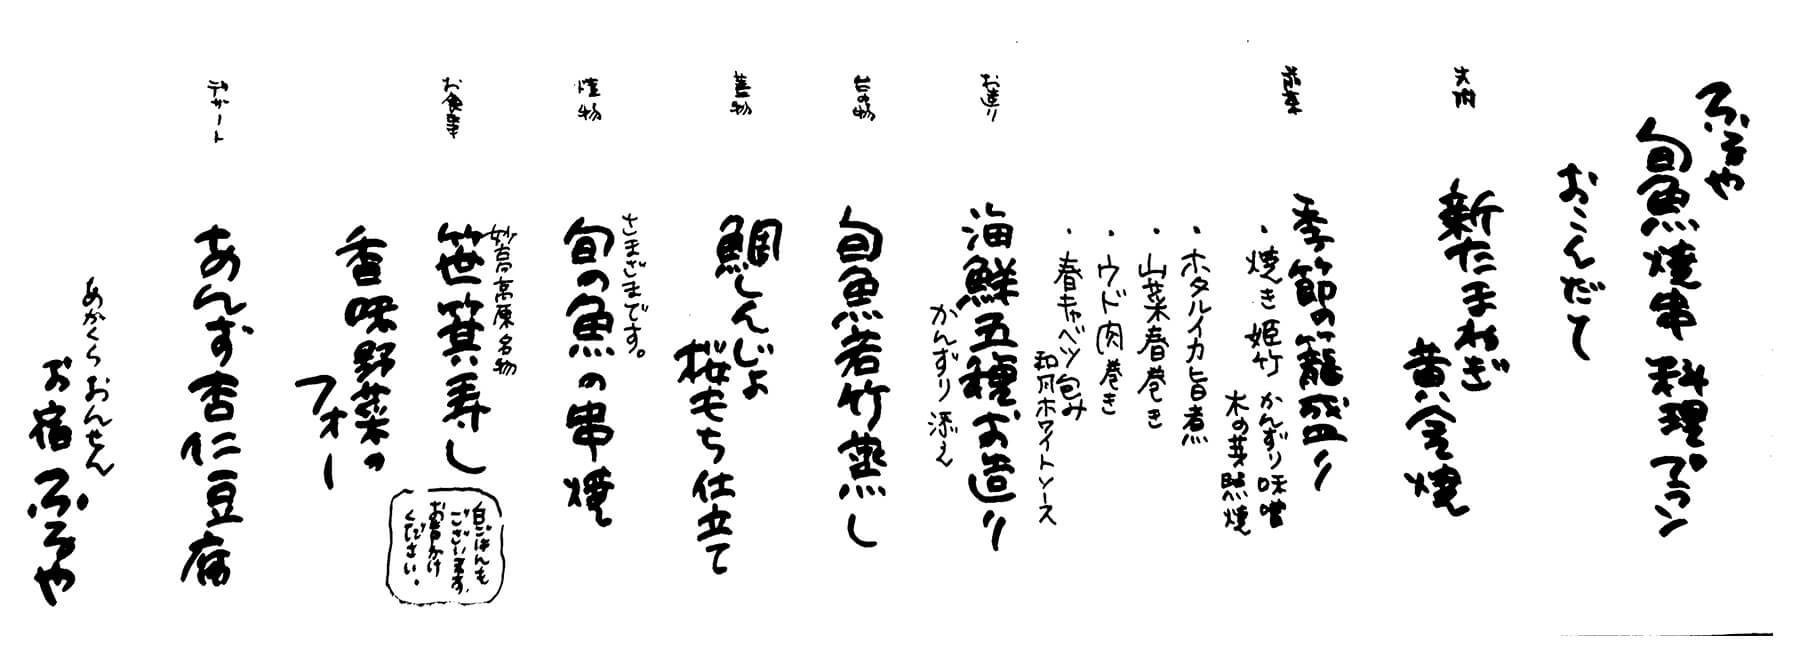 ふるや
旬魚焼串 料理プラン
おこんだて
先附
新たまねぎ
黄金焼
前菜
季節の籠盛り
・焼き姫竹 かんずり味噌
木の芽照焼
・ホタルイカ旨煮
・山菜春巻き
・ウド肉巻き
・春キャベツ包み
和風ホワイトソース
お造り
海鮮五種お造り
かんずり添え
台の物
旬魚若竹蒸し
蓋物
鯛しんじょ
桜もち仕立て
焼物
さまざまです。
旬の魚の串焼
お食事
妙高高原名物
笹箕寿し
白ごはんも
ございます。
お声かけ
ください。
香味野菜の
フォー
デザート
あんず杏仁豆腐
あかくらおんせん
お宿ふるや